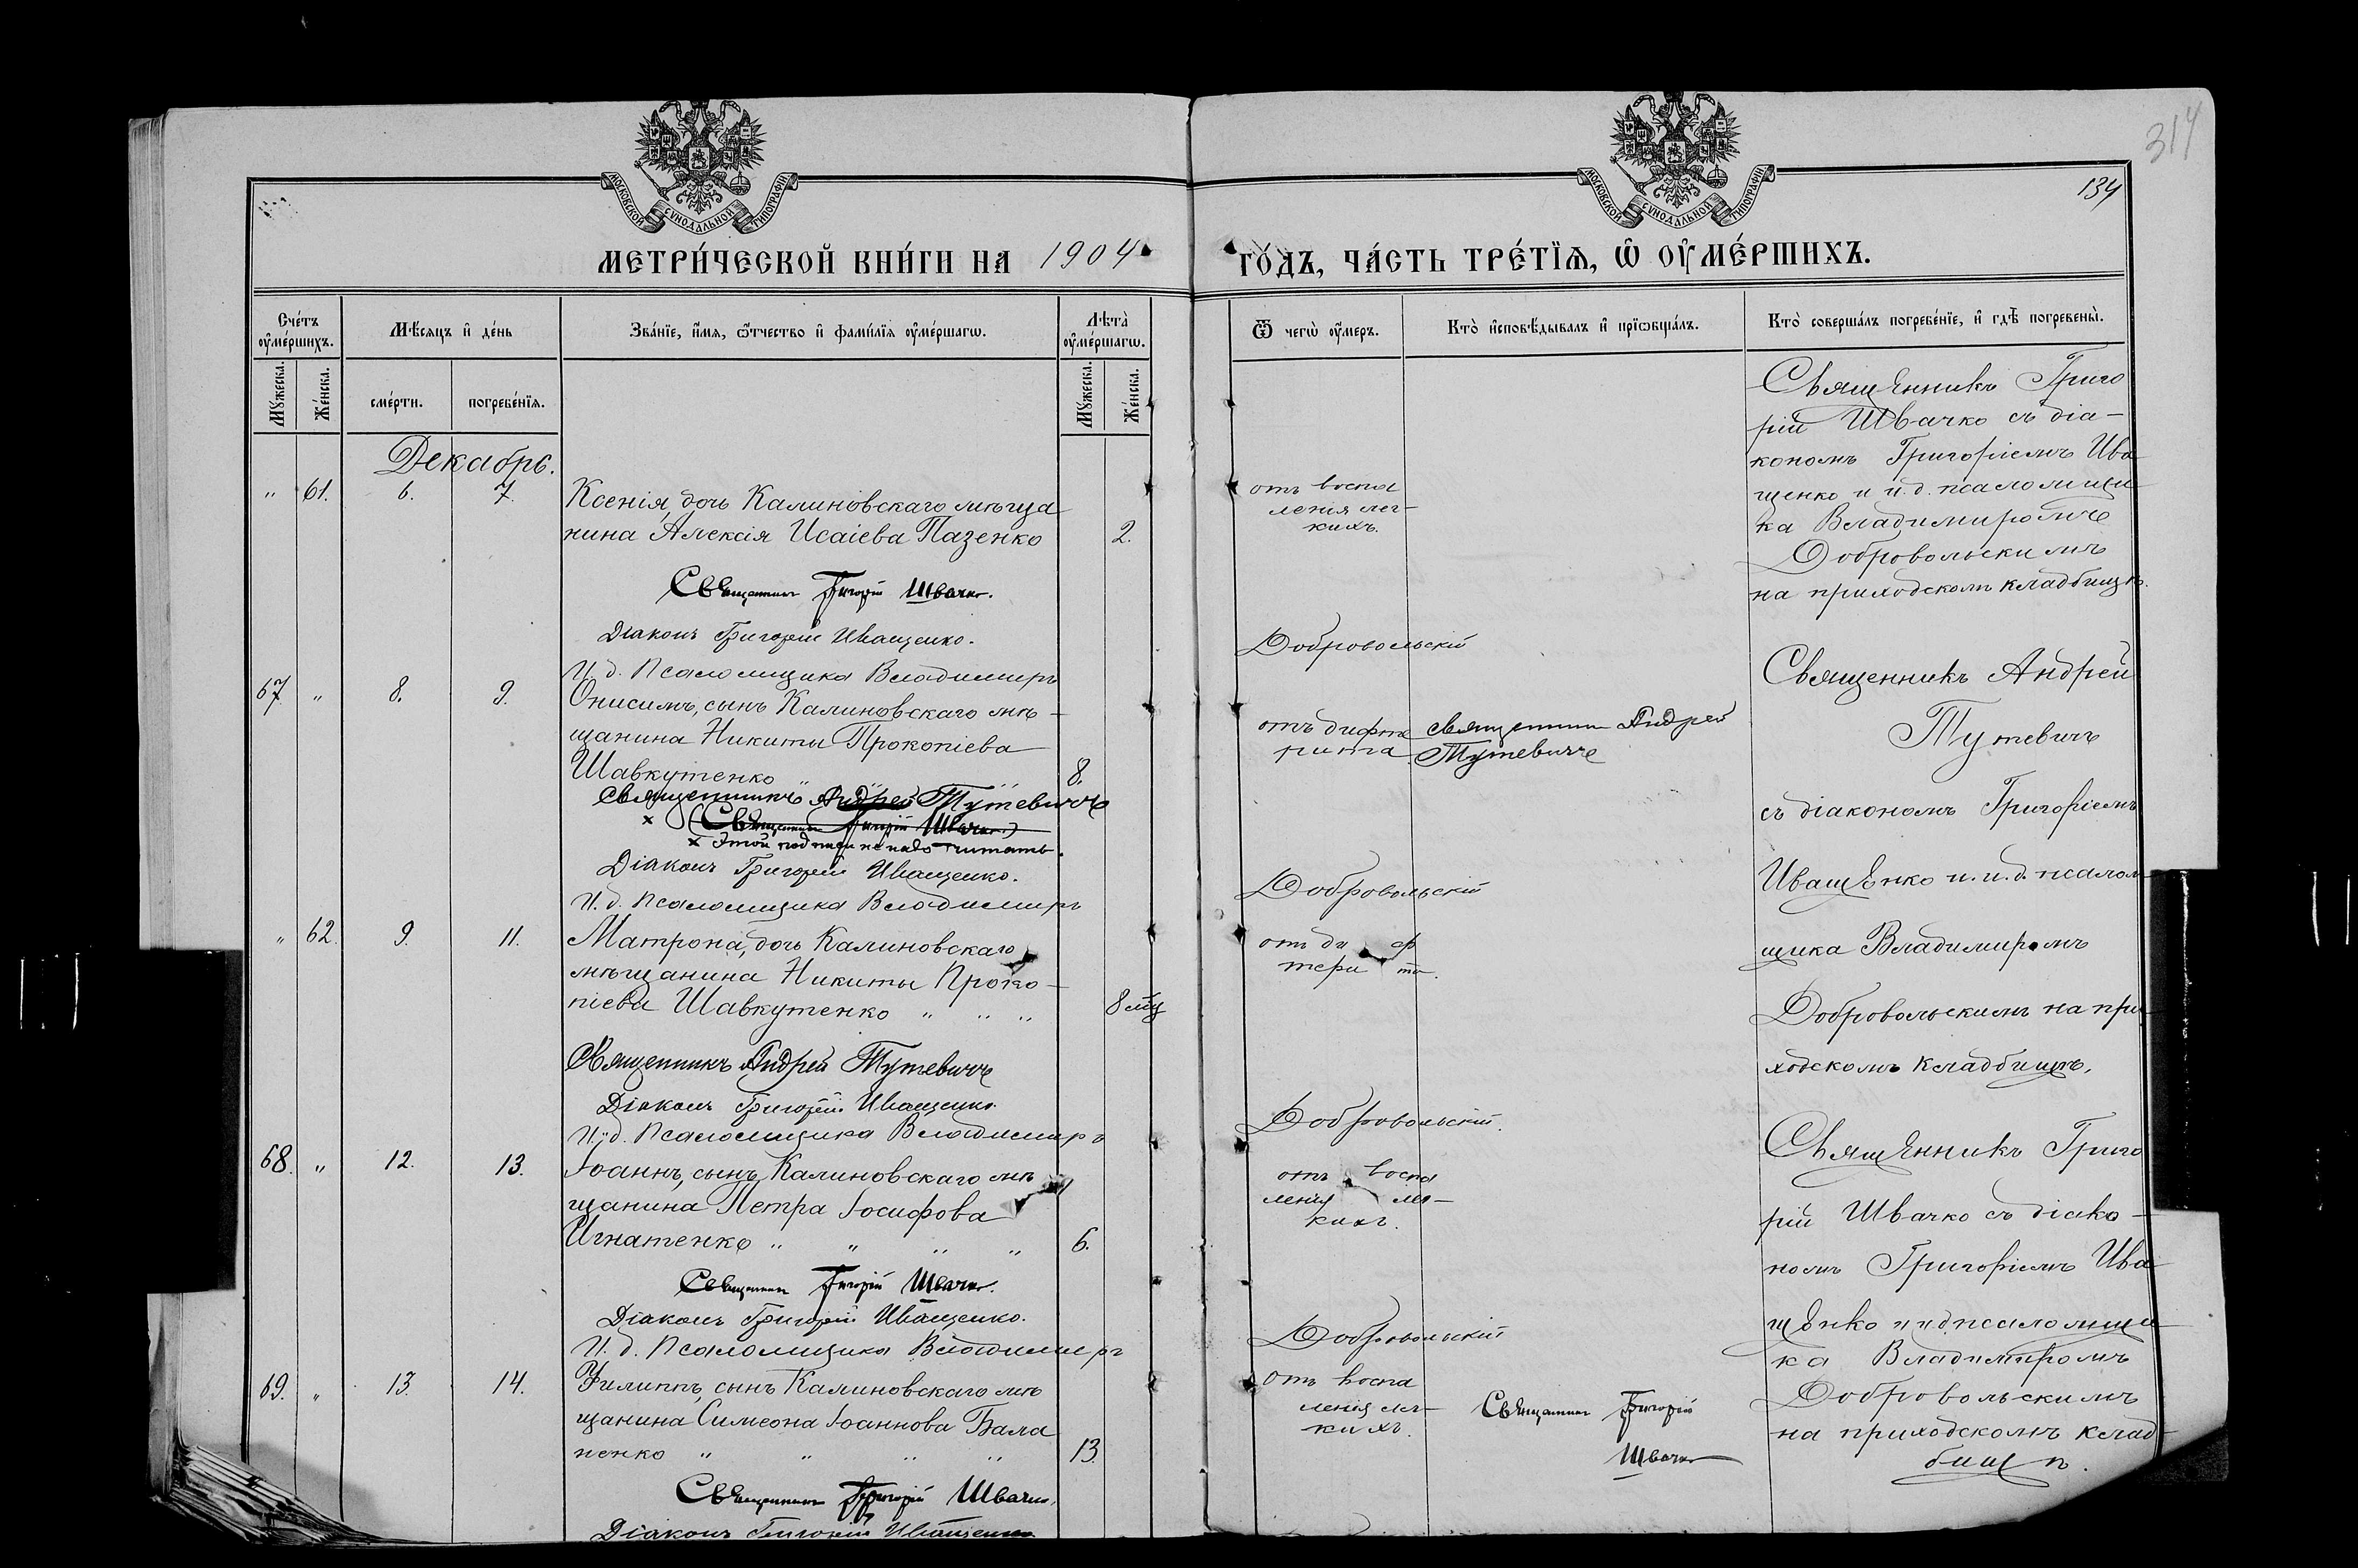 314
134
МОСКОВСКОЙ СѴНОДАЛЬНОЙ ТИПОГРАФІИ
МОСКОВСКОЙ СѴНОДАЛЬНОЙ ТИПОГРАФІИ
МЕТРИ́ЧЕСКОЙ КНИ́ГИ НА 1904
ГО́ДЪ, ЧА́СТЬ ТРЕ́ТЇѦ, Ѡ҆ ОУ҆МЕ́РШИХЪ.
Сче́тъ оу҆ме́ршихъ.
Мѣ́сяцъ и҆ де́нь
Зва́нїе, и҆́мѧ, ѻ҆́тчество и҆ фами́лїѧ оу҆ме́ршагѡ.
Лѣ̑та̀ оу҆ме́ршагѡ.
Ѿ чегѡ̀ оу҆́меръ.
Кто̀ и҆сповѣ́дывалъ и҆ прїѡбща́лъ.
Кто̀ соверша́лъ погребе́нїе, и҆ гдѣ̀ погребены̀.
Му́жеска.
Же́нска.
сме́рти.
погребе́нїѧ.
Му́жеска.
Же́нска.
Декабрь.
" 61. 6. 7.
Ксенія, дочь Калиновскаго мѣща
нина Алексія Исаіева Пазенко 2.
Священникъ Григорій Швачко.
Діаконъ Григорій Иващенко.
И. д. Псаломщика Владиміръ
Добровольскій
отъ воспа
ленія лег-
кихъ.
Священникъ Григо
рій Швачко съ діа-
кономъ Григоріемъ Ива
щенко и и. д. псаломщи
ка Владимиромъ
Добровольскимъ
на приходскомъ кладбищѣ.
67. " 8. 9.
Онисимъ, сынъ Калиновскаго мѣ-
щанина Никиты Прокопіева
Шавкутенко 8.
Священникъ Андрей Тутевичъ
x (Священникъ Григорій Швачко.)
x Этой подписи не надо читать.
Діаконъ Григорій Иващенко.
И. д. Псаломщика Владиміръ
Добровольскій
отъ дифте
рита
Священникъ Андрей
Тутевичъ
Священникъ Андрей
Тутевичъ
съ діакономъ Григоріемъ
Иващенко и. и. д. псалом-
щика Владимиромъ
Добровольскимъ на при
ходскомъ кладбищѣ.
" 62. 9. 11.
Матрона, дочь Калиновскаго
мѣщанина Никиты Проко-
піева Шавкутенко " " " 8 мц
Священникъ Андрей Тутевичъ
Діаконъ Григорій Иващенко.
И. д. Псаломщика Владиміръ
Добровольскій.
отъ ди ф
тери та.
68. " 12. 13.
Іоаннъ, сынъ Калиновскаго мѣ
щанина Петра Іосифова
Игнатенко " " " " 6.
Священникъ Григорій Швачко.
Діаконъ Григорій Иващенко.
И. д. Псаломщика Владиміръ
Добровольскій
отъ воспа
ленія ле-
кихъ.
Священникъ Григо
рій Швачко съ діако-
номъ Григоріемъ Ива
щенко и и д псаломщи
ка Владимиромъ
Добровольскимъ
на приходскомъ клад-
бищѣ.
69. " 13. 14.
Филиппъ, сынъ Калиновскаго мѣ
щанина Симеона Іоаннова Бала
ненко " " " " 13.
Священникъ Григорій Швачко.
Діаконъ Григорій Иващенко
Отъ воспа
ленія лег-
кихъ.
Священникъ Григорій
Швачко